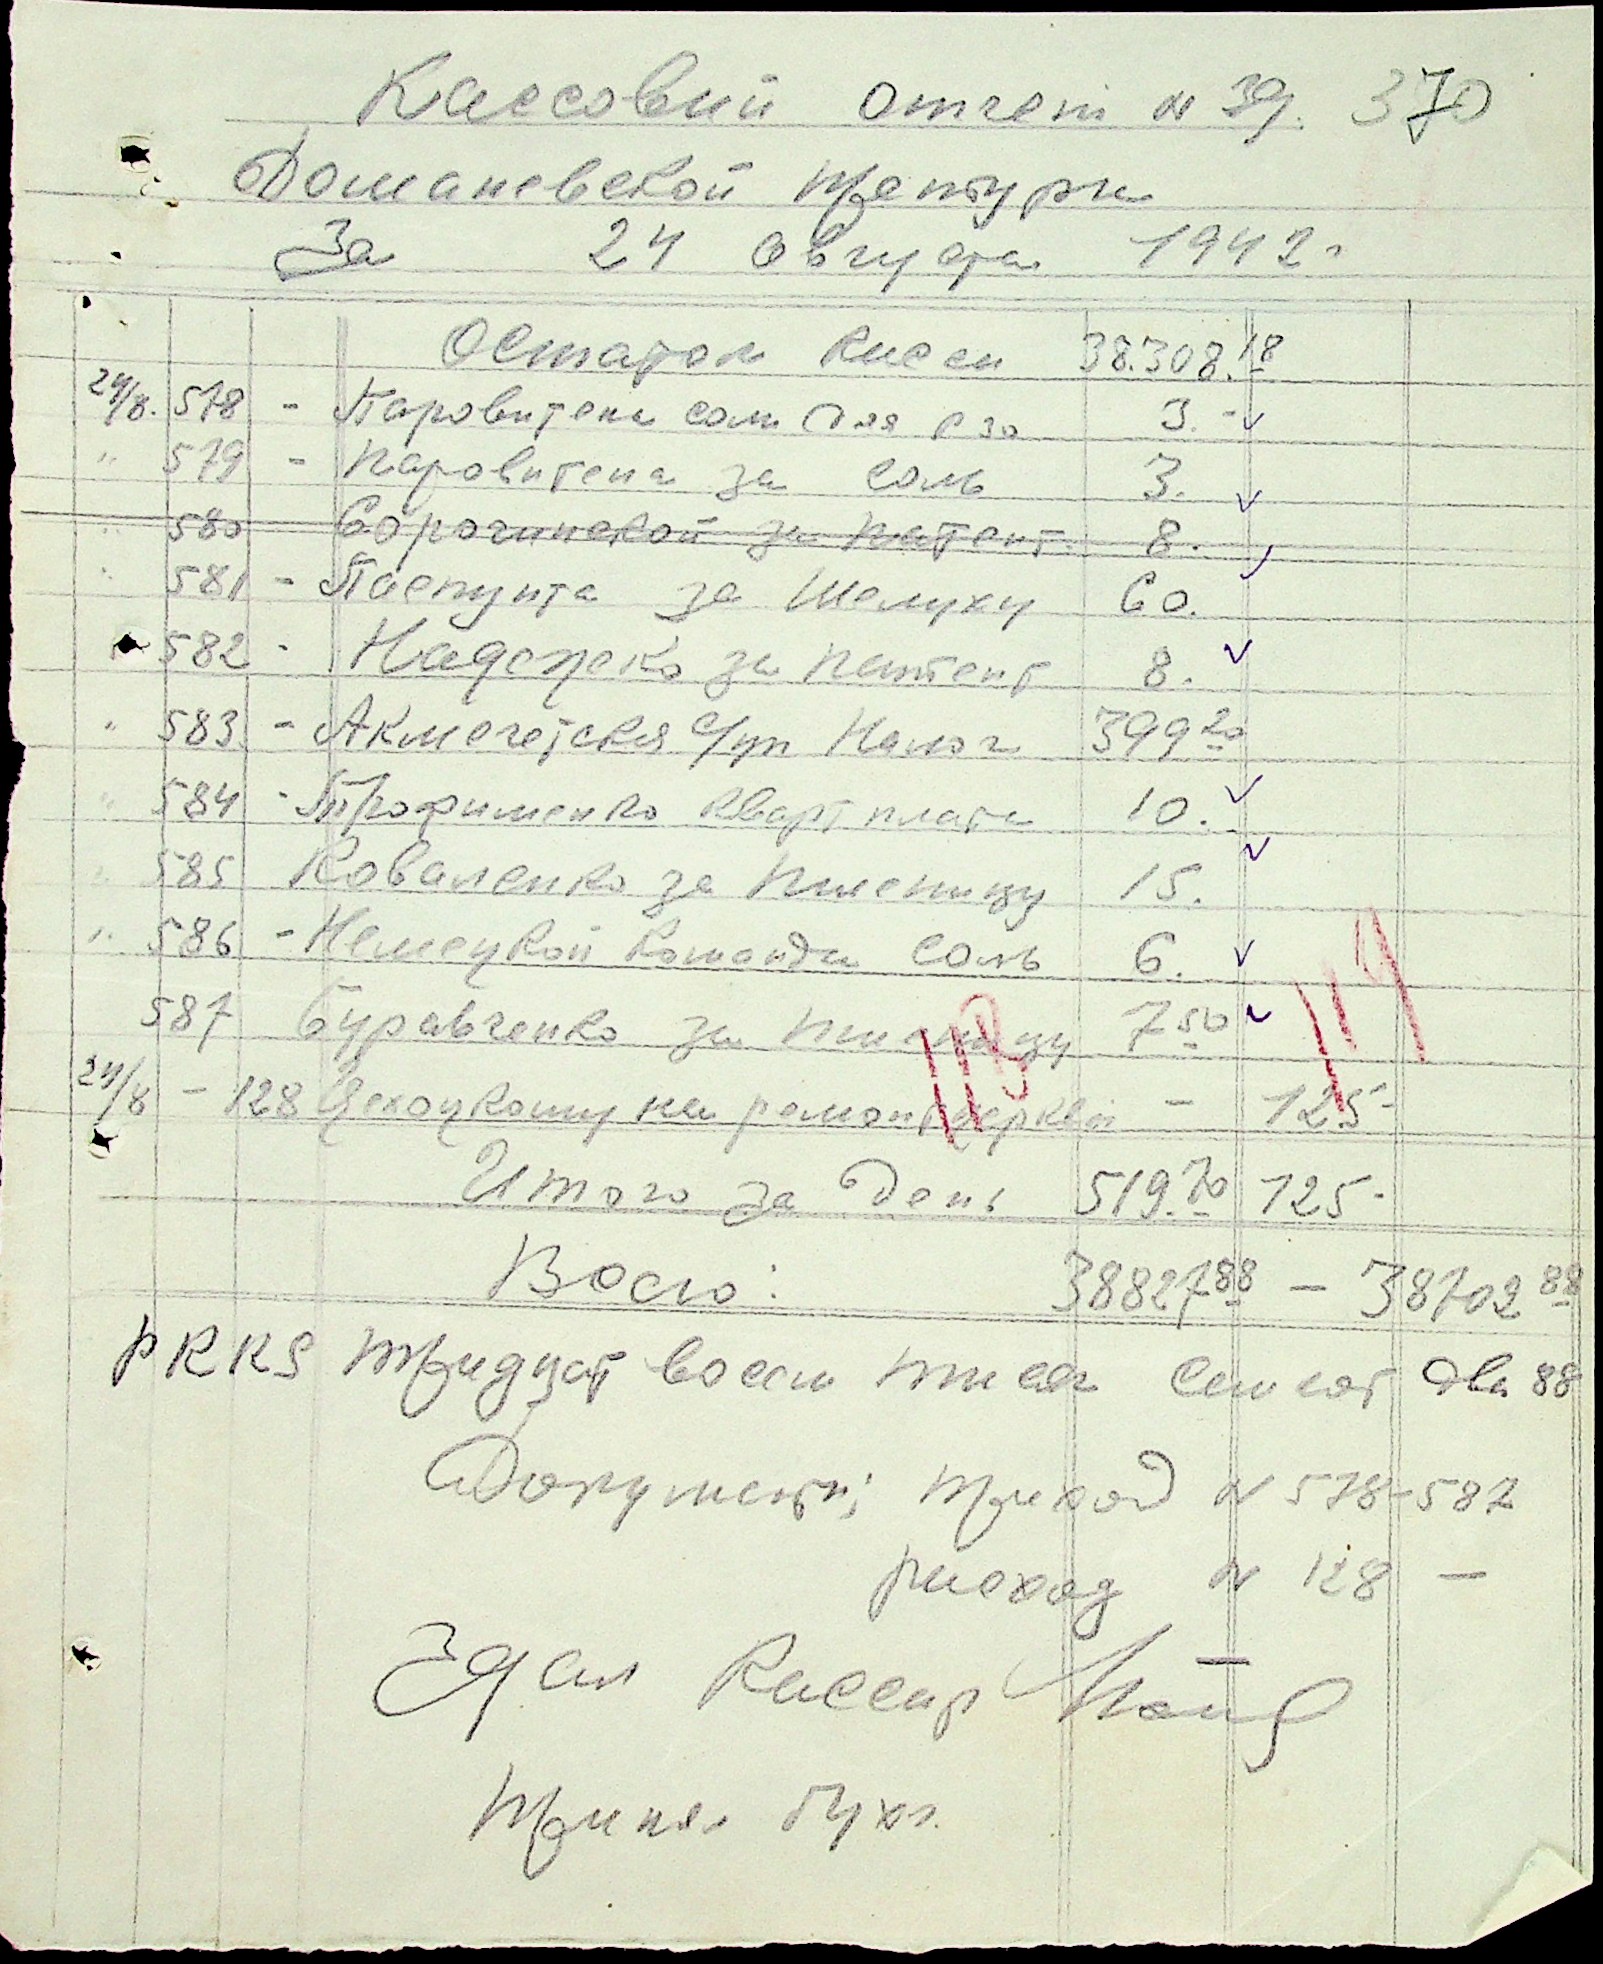 Кассовий отчет № 39. 370
Доманевской претури
За 24 августа 1942 г
Остаток касси 38.308.18
24/8. 578 - Паровитена соли для 3.-
" 579 - Паровитена за соль 3.
" 580 Сорочинской за патент 8.
" 581 - Паспунта за Шелуху 60.
" 582 - Надопеко за патент 8.
" 583 - Акмечетская с/уп Налог 399 20
" 584 - Трофименко кварт плата 10.
" 585 Коваленко за пшеницу 15.
" 586 - Немецкой команди соль 6.
587 Буравченко за пшеницу 7 50
118 119
24/8 - 128 на ремонт церкви - 125-
Итого за день 519.70 125-
Всего: 38827 88 - 38702 88
РККS Тридцат восем тисяч семсот два 88
Документи; приход № 578-587
расход № 128 -
Здал Кассир
Принял бухг.